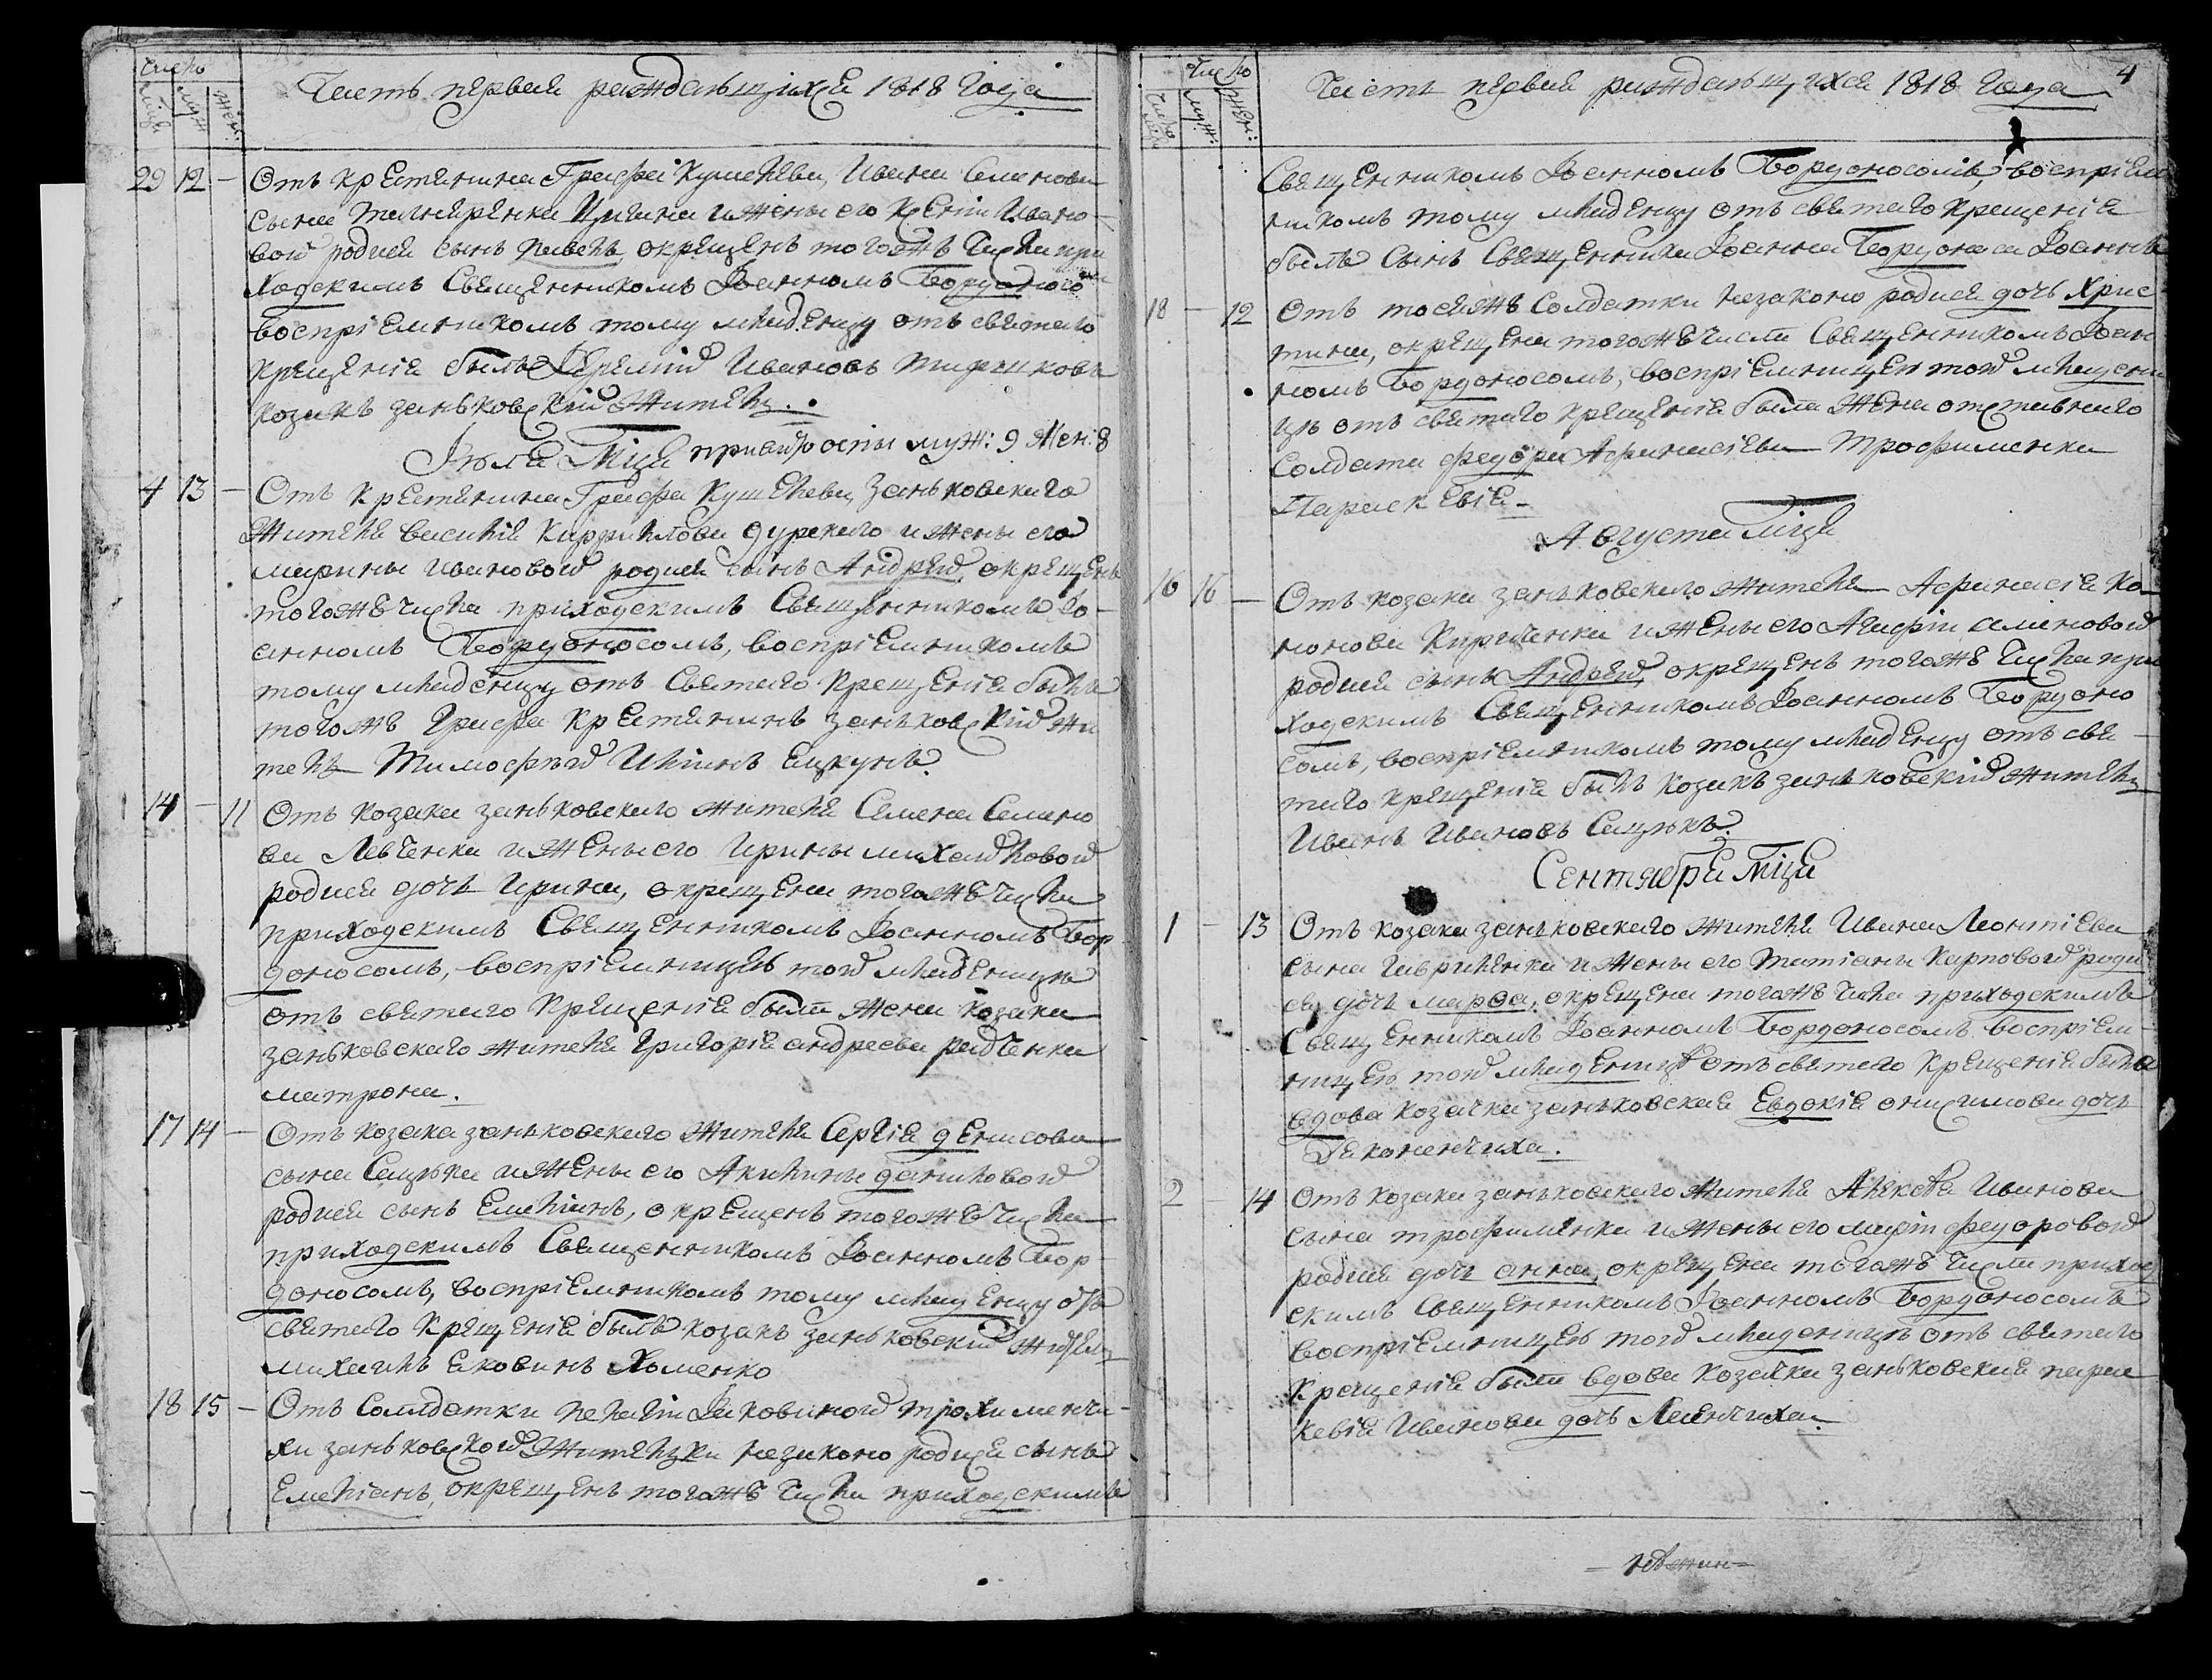 число
муж
жен:
Часть первая раждающихся 1818 года
29 12 – Отъ крестянина Графа Кушелева, Ивана Семенова
сына и жены его Ксеніи Ивано-
вой родися сынъ Павелъ, окрещенъ тогожъ числа при
ходскимъ Священникомъ Іоанномъ Бордоносо
воспріемникомъ тому младенцу отъ святаго
крещенія былъ Іеремій Ивановъ
козакъ заньковскій житель.
Іюля мца муж: 9 жен: 8
4 13 – Отъ крестянина Графа Кушелева, заньковскаго
жителя василія Кирилова дурскаго и жены его
марины ивановой родися сынъ Андрей, окрещенъ
тогожъ числа приходскимъ Священникомъ Іо-
анномъ Бордоносомъ, воспріемникомъ
тому младенцу отъ Святаго Крещенія былъ
тогожъ Графа крестянинъ заньковскій жи
тель Тимофѣй Ильинъ
14 – 11 Отъ козака заньковскаго жителя Семена Семено
ва Левченка и жены его Ирины михайловой
родися дочь Ирина, окрещена тогожъ числа
приходскимъ Священникомъ Іоанномъ Бор
доносомъ, воспріемницею той младеницѣ
отъ святаго Крещенія была жена козака
заньковскаго жителя Григорія андреева радченка
матрона.
17 14 – Отъ козака заньковскаго жителя Сергія денисова
сына Сацька и жены его Акилины даниловой
родися сынъ Емеліанъ, окрещенъ тогожъ числа
приходскимъ Священникомъ Іоанномъ Бор
доносомъ, воспріемникомъ тому младенцу отъ
святаго Крещенія былъ козакъ заньковскій житель
михаилъ яковинъ Хоменко
18 15 – Отъ Солдатки пелагіи Іаковиной трохименчи-
хи заньковской жителки незаконо родися сынъ
Емеліанъ, окрещенъ тогожъ числа приходскимъ
число
муж:
жен:
Часть первая раждающихся 1818 года
4
Священникомъ Іоанномъ Бордоносомъ, воспріем
никомъ тому младенцу отъ святаго крещенія
былъ Сынъ Священника Іоанна Бордоноса Іоаннъ
18 – 12 Отъ тоеяжъ Солдатки незаконо родися дочь Хрис
тина, окрещена тогожъ числа Священникомъ Іоан
номъ Бордоносомъ, воспріемницею той младени
цѣ отъ святаго крещенія была жена отставнаго
Солдата федора Афанасіева Трофименка
Параскевія –
Августа мца
16 16 – Отъ козака заньковскаго жителя Афанасія Ко
нонова Кириченка и жены его Агафіи семеновой
родися сынъ Андрей, окрещенъ тогожъ числа при
ходскимъ Священникомъ Іоанномъ Бордоно
сомъ, воспріемникомъ тому младенцу отъ свя-
таго крещенія былъ козакъ заньковскій житель
Иванъ Ивановъ Сацькъ.
Сентября мца
1 – 13 Отъ козака заньковскаго жителя Ивана Леонтіева
сына Гавриленка и жены его Татіаны Карповой роди
ся дочь марфа, окрещена тогожъ числа приходскимъ
Священникомъ Іоанномъ Бордоносомъ воспріем-
ницею той младеницѣ отъ святаго Крещенія была
вдова козачка заньковская Евдокія онисимова дочь
Іаконенчиха.
2 – 14 Отъ козака заньковскаго жителя Алексѣя Иванова
сына трофименка и жены его федоровой
родися дочь анна, окрещена тогожъ числа приход
скимъ Священникомъ Іоанномъ Бордоносомъ
воспріемницею той младеницѣ отъ святаго
Крещенія была вдова козачка заньковская парас
кевія Иванова дочь